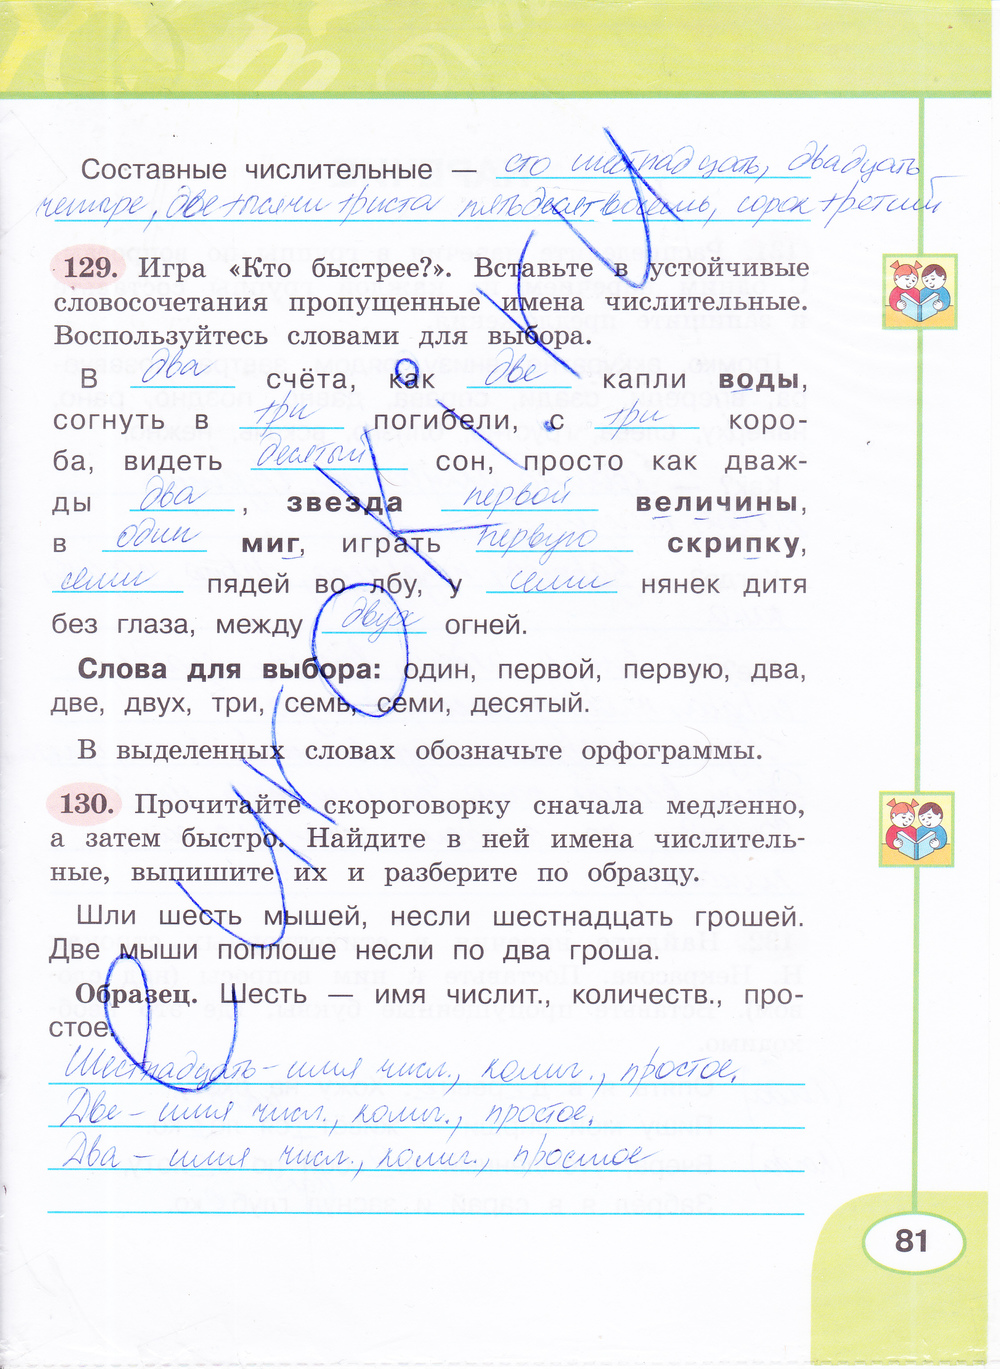 Составные числительные — сто шестнадцать, двадцать
четыре, две тысячи триста пятьдесят восемь, сорок третий
129. Игра «Кто быстрее?». Вставьте в устойчивые
словосочетания пропущенные имена числительные.
Воспользуйтесь словами для выбора.
В два счёта, как две капли воды,
согнуть в три погибели, с три коро-
ба, видеть десятый сон, просто как дваж-
ды два, звезда первой величины,
в один миг, играть первую скрипку,
семи пядей во лбу, у семи нянек дитя
без глаза, между двух огней.
Слова для выбора: один, первой, первую, два,
две, двух, три, семь, семи, десятый.
В выделенных словах обозначьте орфограммы.
130. Прочитайте скороговорку сначала медленно,
а затем быстро. Найдите в ней имена числитель-
ные, выпишите их и разберите по образцу.
Шли шесть мышей, несли шестнадцать грошей.
Две мыши поплоше несли по два гроша.
Образец. Шесть — имя числит., количеств., про-
стое.
Шестнадцать - имя числ., колич., простое.
Две - имя числ., колич., простое.
Два - имя числ., колич., простое
81